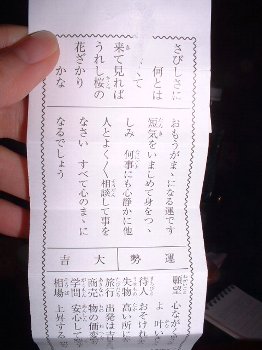 さびしさに
何とは
て
来て見れば
うれし桜の
花ざかり
かな
おもうがまゝになる運です
短気をいましめて身をつゝ
しみ 何事にも心静かに他
人とよくよく相談して事を
なさい すべて心のまゝに
なるでしょう
運勢
大吉
願望 心なが
よ 叶い
待人 おそけれ
失物 高所に
旅行 出発は吉
商売 物の価変
学問 安心して
相場 上昇する